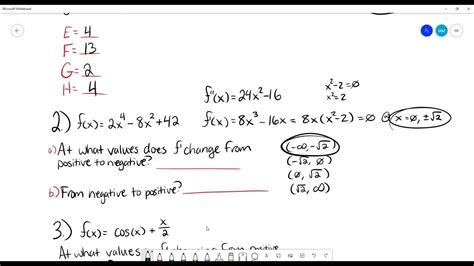 Microsoft Whiteboard
E= 4
F= 13
G= 2
H= 4
f"(x)=24x²-16
x²-2=∅
x²=2
2.) f(x)=2x⁴-8x²+42
f'(x)=8x³-16x=8x(x²-2)=∅ → x=∅,±√2
a) At what values does f' change from
positive to negative?
(-∞,-√2)
(-√2, ∅)
(∅, √2)
(√2, ∞)
b) From negative to positive?
3.) f(x)= cos(x)+ x/2
At what values
from positive